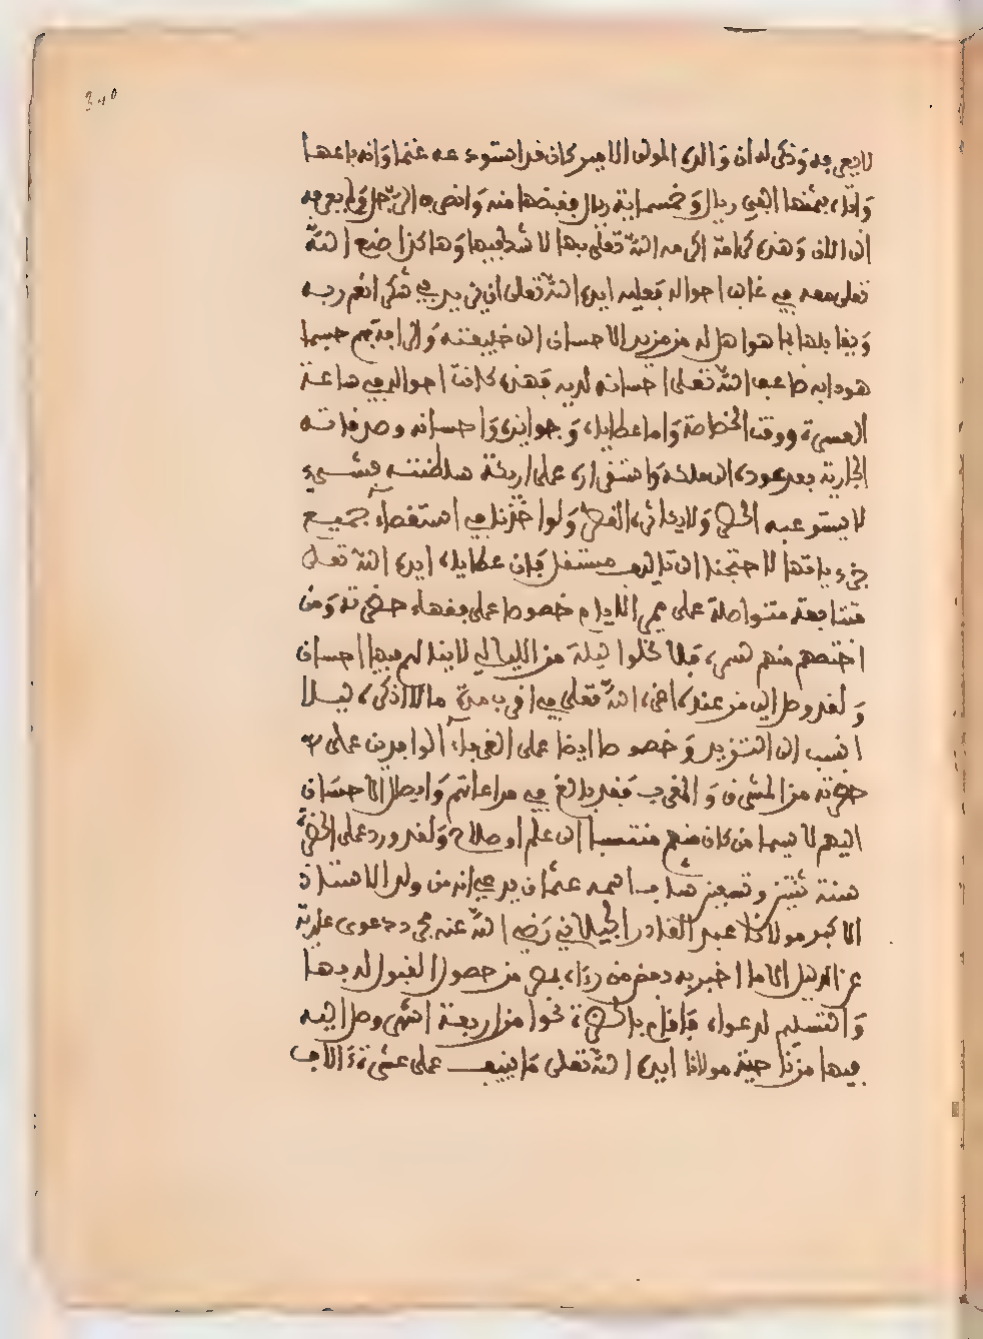 340
لا يعرفه وذكر له ان والده المولى الامير كان قد استودعه غنما وانه باعها
واتاه بثمنها الفي ريال وخمسماية ريال فقبضها منه وانصرف الرجل ولم يعرفه
الى الان وهذه كرامة اكرمه الله تعلى بها لا شك فيها وهاكذا صنع الله
تعلى معه في غالب احواله فعليه ايده الله تعلى ان يزيد في شكر انعم ربه
ويقابلها بما هو اهل له من مزيد الاحسان الى خليقته والرافة بهم حسبما
هو دابه ضاعف الله تعلى احسانه لديه فهذه كانت احواله في ساعة
العسرة ووقت الخصاصة واما عطاياه وجوايزه واحسانه وصدقاته
الجارية بعد عوده الى ملكه واستقراره على اريكة سلطنته فشيء
لا يستوعبه الحصر ولو اخذنا في استقصاء جميع
جزءياتها لاحتجنا الى تاليف مستقل فان عطاياه ايده الله تعلى
متتابعة متواصلة على ممر الايام خصوصا على فقهاء حضرته ومن
اختصهم منهم لسرده فلا تخلوا ليلة من الليالي لا يناله فيها احسان
ولقد وصل الي من عنده اعزه الله تعلى في اقرب مدة ما لا اذكره ليلا
انسب الى التزيد وخصوصا ايضا على الغرباء الوافدين على
حضرته من المشرق والمغرب فقد بالغ في مراعاتهم وايصال الاحسان
اليهم لا سيما من كان منهم منتسبا الى علم او صلاح ولقد ورد على الحضرة
سنة ثنتين وتسعين شاب اسمه عثمان يدعي انه من ولد الاستاذ
الاكبر مولانا عبد القادر الجيلاني رضي الله عنه مجرد دعوى عارية
عن الدليل الا ما اخبر به بعض من رءاه بمصر من حصول القبول له بها
والتسليم لدعواه فاقام بالحضرة نحوا من اربعة اشهر وصل اليه
فيها من ناحية مولانا ايده الله تعلى ما ينيف على عشرة ءالاف